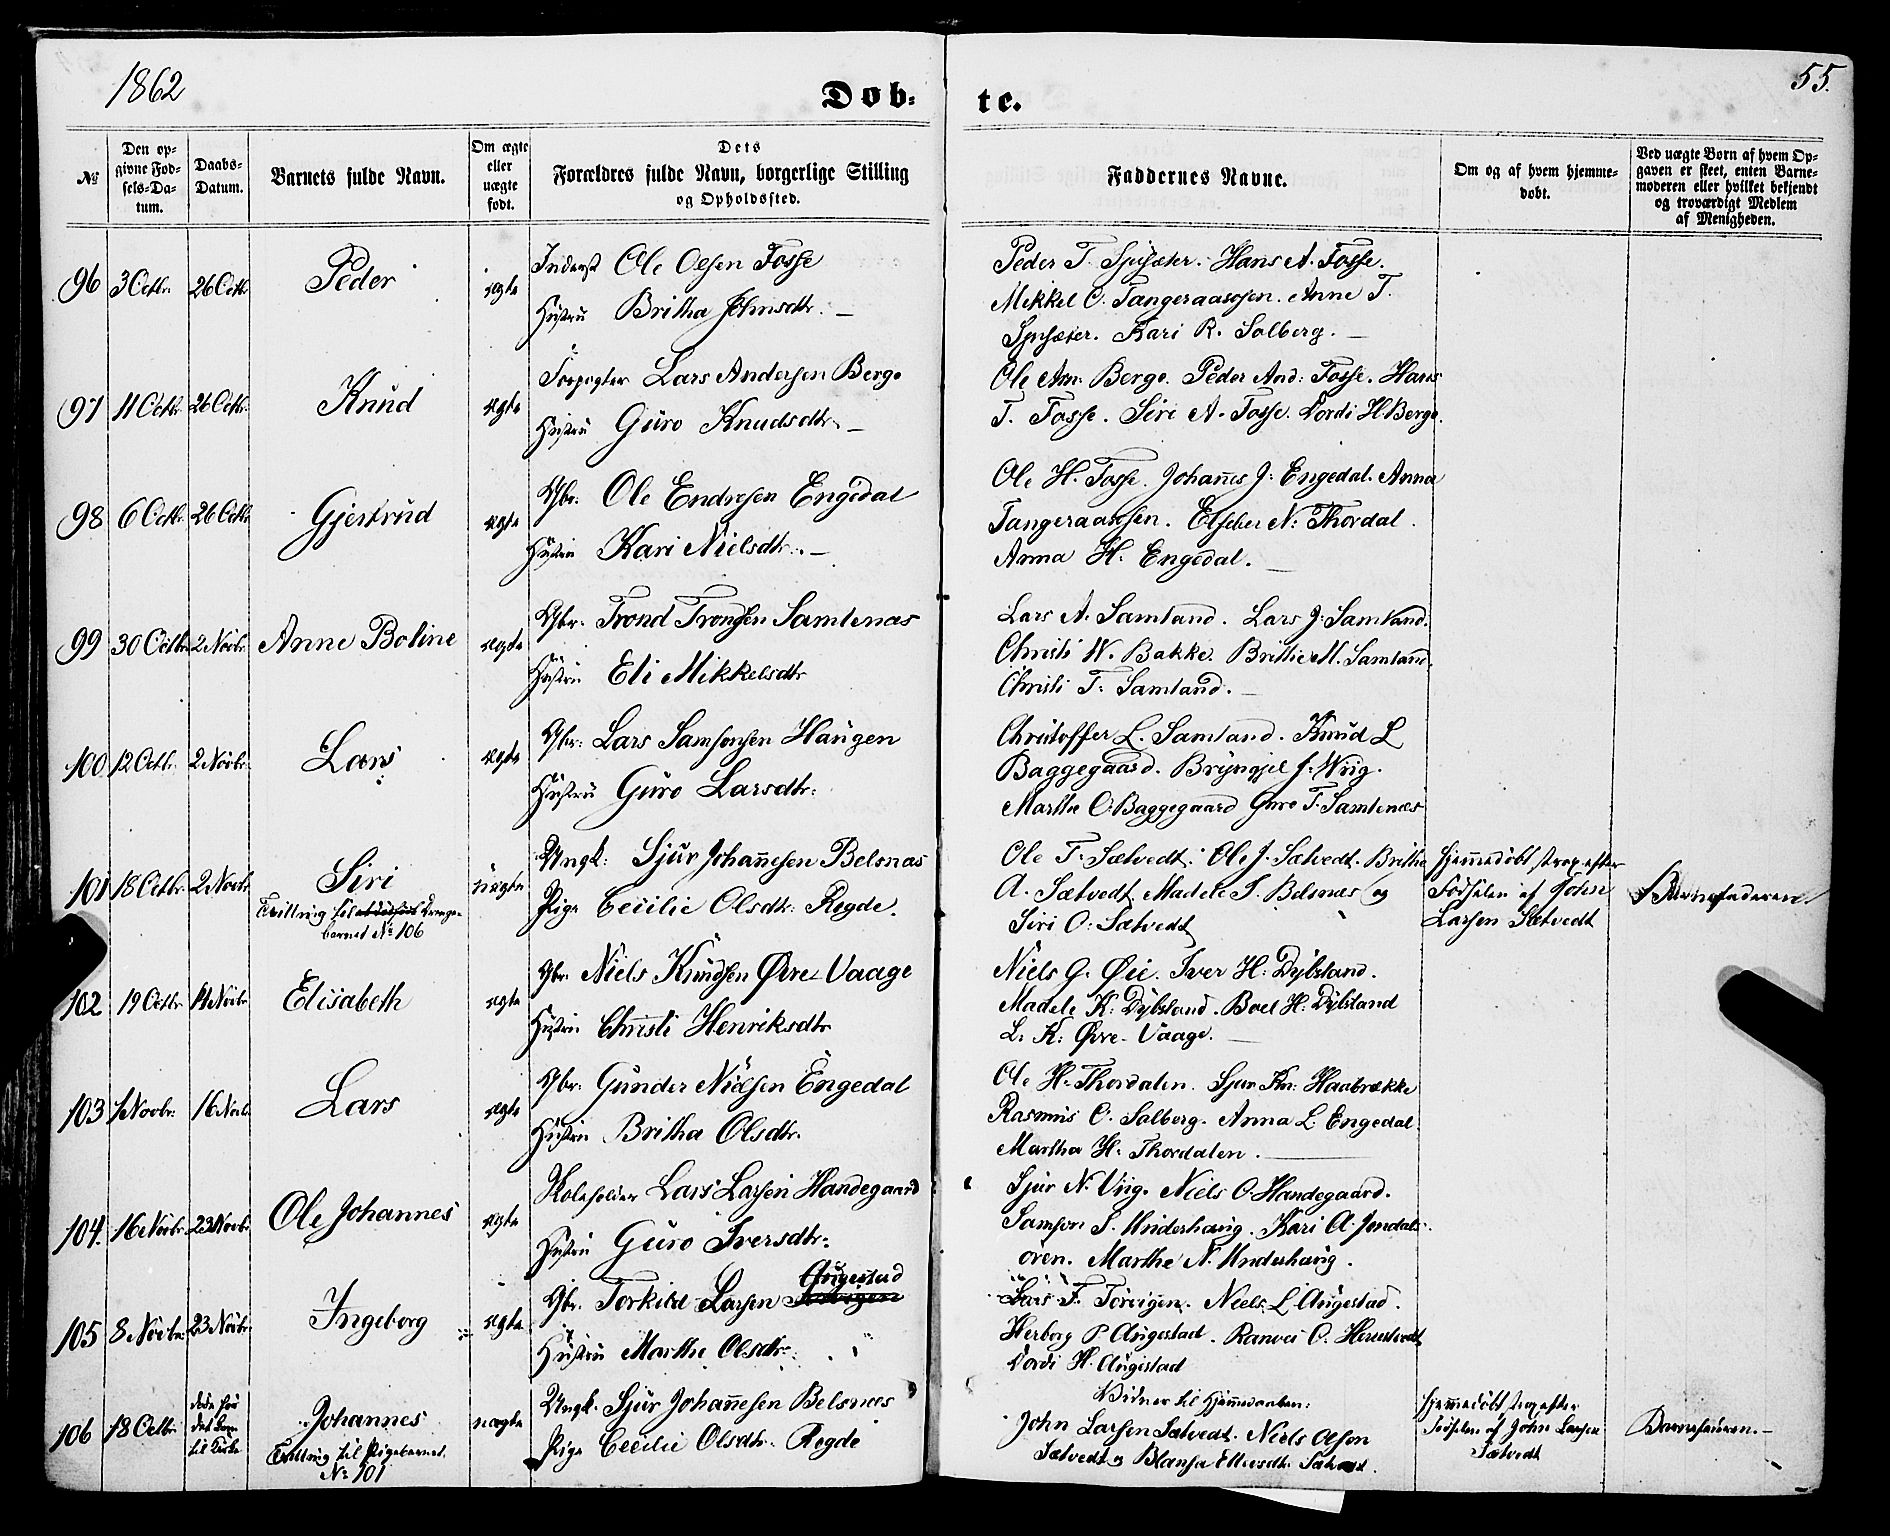 1862
55.
Døb-
te.
№
Den op-
givne Fød-
sels-Da-
tum.
Daabs-
Datum.
Barnets fulde Navn.
Om ægte
eller
uægte
født.
Dets
Forældres fulde Navn, borgerlige Stilling
og Opholdssted.
Faddernes Navne.
Om og af hvem hjemme-
døbt.
Ved uægte Børn af hvem Op-
gaven er skeet, enten Barne-
moderen eller hvilket bekjendt
og troværdigt Medlem
af Menigheden.
96 3 Octbr. 26 Octbr Peder ægte
Inderst Ole Olsen Fosse
Hustru Britha Johnsdtr. —
Peder T. Hans A. Fosse.
Mikkel O. Tangeraassen. Anne T.
Kari R. Solberg. —
97 11 Octbr 26 Octbr. Knud ægte
Forpagter Lars Andersen Berge
Hustru Guro Knudsdtr. —
Ole Am. Berge. Peder And: Fosse. Hans
T. Fosse. Siri A. Fosse. Vordi H. Berge.
98 6 Octbr. 26 Octbr Gjertrud ægte
Gbr. Ole Endresen Engedal
Hustru Kari Nielsdtr. —
Ole H. Fosse. Johannes J. Engedal. Anna
Tangeraassen. N. Thordal.
Anna H. Engedal. —
99 30 Octbr 2 Novbr. Anne Boline ægte
Gbr. Trond Tronsen Samlenæs
Hustru Eli Mikkelsdtr
Lars A. Samland. Lars J. Samland.
Christi W. Bakke. Brithe M. Samland.
Christi T. Samland. —
100 12 Octbr. 2 Novbr. Lars ægte
Gbr: Lars Samsonsen Haugen
Hustru Guro Larsdtr.
Christoffer L. Samland. Knud L
Baggegaard. Bryngjel J. Wiig.
Marthe O. Baggegaard Guro T. Samlenæs
101 18 Octbr. 2 Novbr. Siri uægte
Tvilling til Drenge-
barnet No 106
Ungk: Sjur Johannesen Belsnæs
Pige Cecilie Olsdtr: Regde.
Ole T. Sætvedt. Ole J. Sætvedt. Britha
A. Sætvedt, Madele S. Belsnæs og
Siri O: Sætvedt
Hjemmedøbt strax efter
Fødselen af John
Larsen Sætvedt
Barnefaderen
102 19 Octbr. Novbr Elisabeth ægte
Gbr. Niels Knudsen Øvre Vaage
Hustru Christi Henriksdtr
Niels G. Øie. Iver H. Dybsland.
Madele K: Dybsland. Boel H: Dybsland
L. K: Øvre-Vaage. —
103 1 Novbr: 16 Novb. Lars ægte
Gbr: Gunder Nielsen Engedal
Hustru Britha Olsdtr.
Ole H. Thordalen. Sjur Kn: Haabrække
Rasmus O. Salberg. Anna L. Engedal.
Martha H. Thordalen. —
104. 16 Novbr. 23 Novbr. Ole Johannes ægte
Lars Larsen Handegaard
Hustru Guro Iversdtr:
Sjur N. Viig. Niels O. Handegaard.
Samson S. Underhaug. Kari A. Jondals-
øren. Marthe N. Underhaug.
105 8 Novbr. 23 Novbr. Ingeborg ægte
Gbr. Torkild Larsen Augestad
Hustru Marthe Olsdtr.
Lars T. Torvigen. Niels L. Augestad.
Herborg P. Augestad. Ranvei O. Herestvedt
Vordi H. Augestad
106 18 Octbr. døde før
det kom
til Kirke Johannes uægte
Tvilling til Pigebarnet.
No 101
Ungk. Sjur Johannesen Belsnæs
Pige Cecilie Olsdtr. Regde
Vidner til Hjemmedaaben:
John Larsen Sætvedt. Niels Olson
Sætvedt og Sætvedt.
Hjemmedøbt strax efter
Fødselen af John Larsen
Sætvedt
Barnefaderen. —